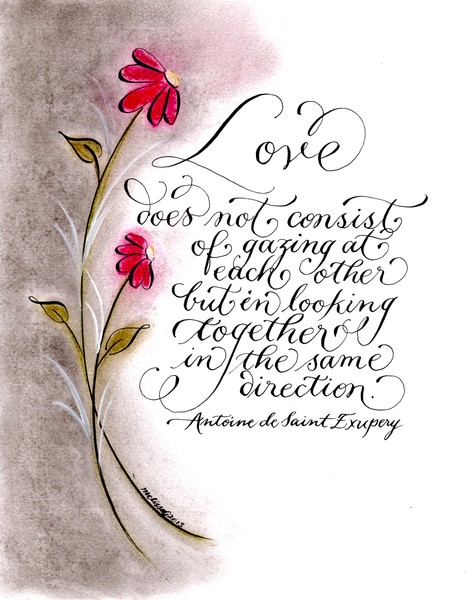 Love
does not consist
of gazing at
each other
but in looking
together
in the same
direction.
Antoine de Saint Exupery